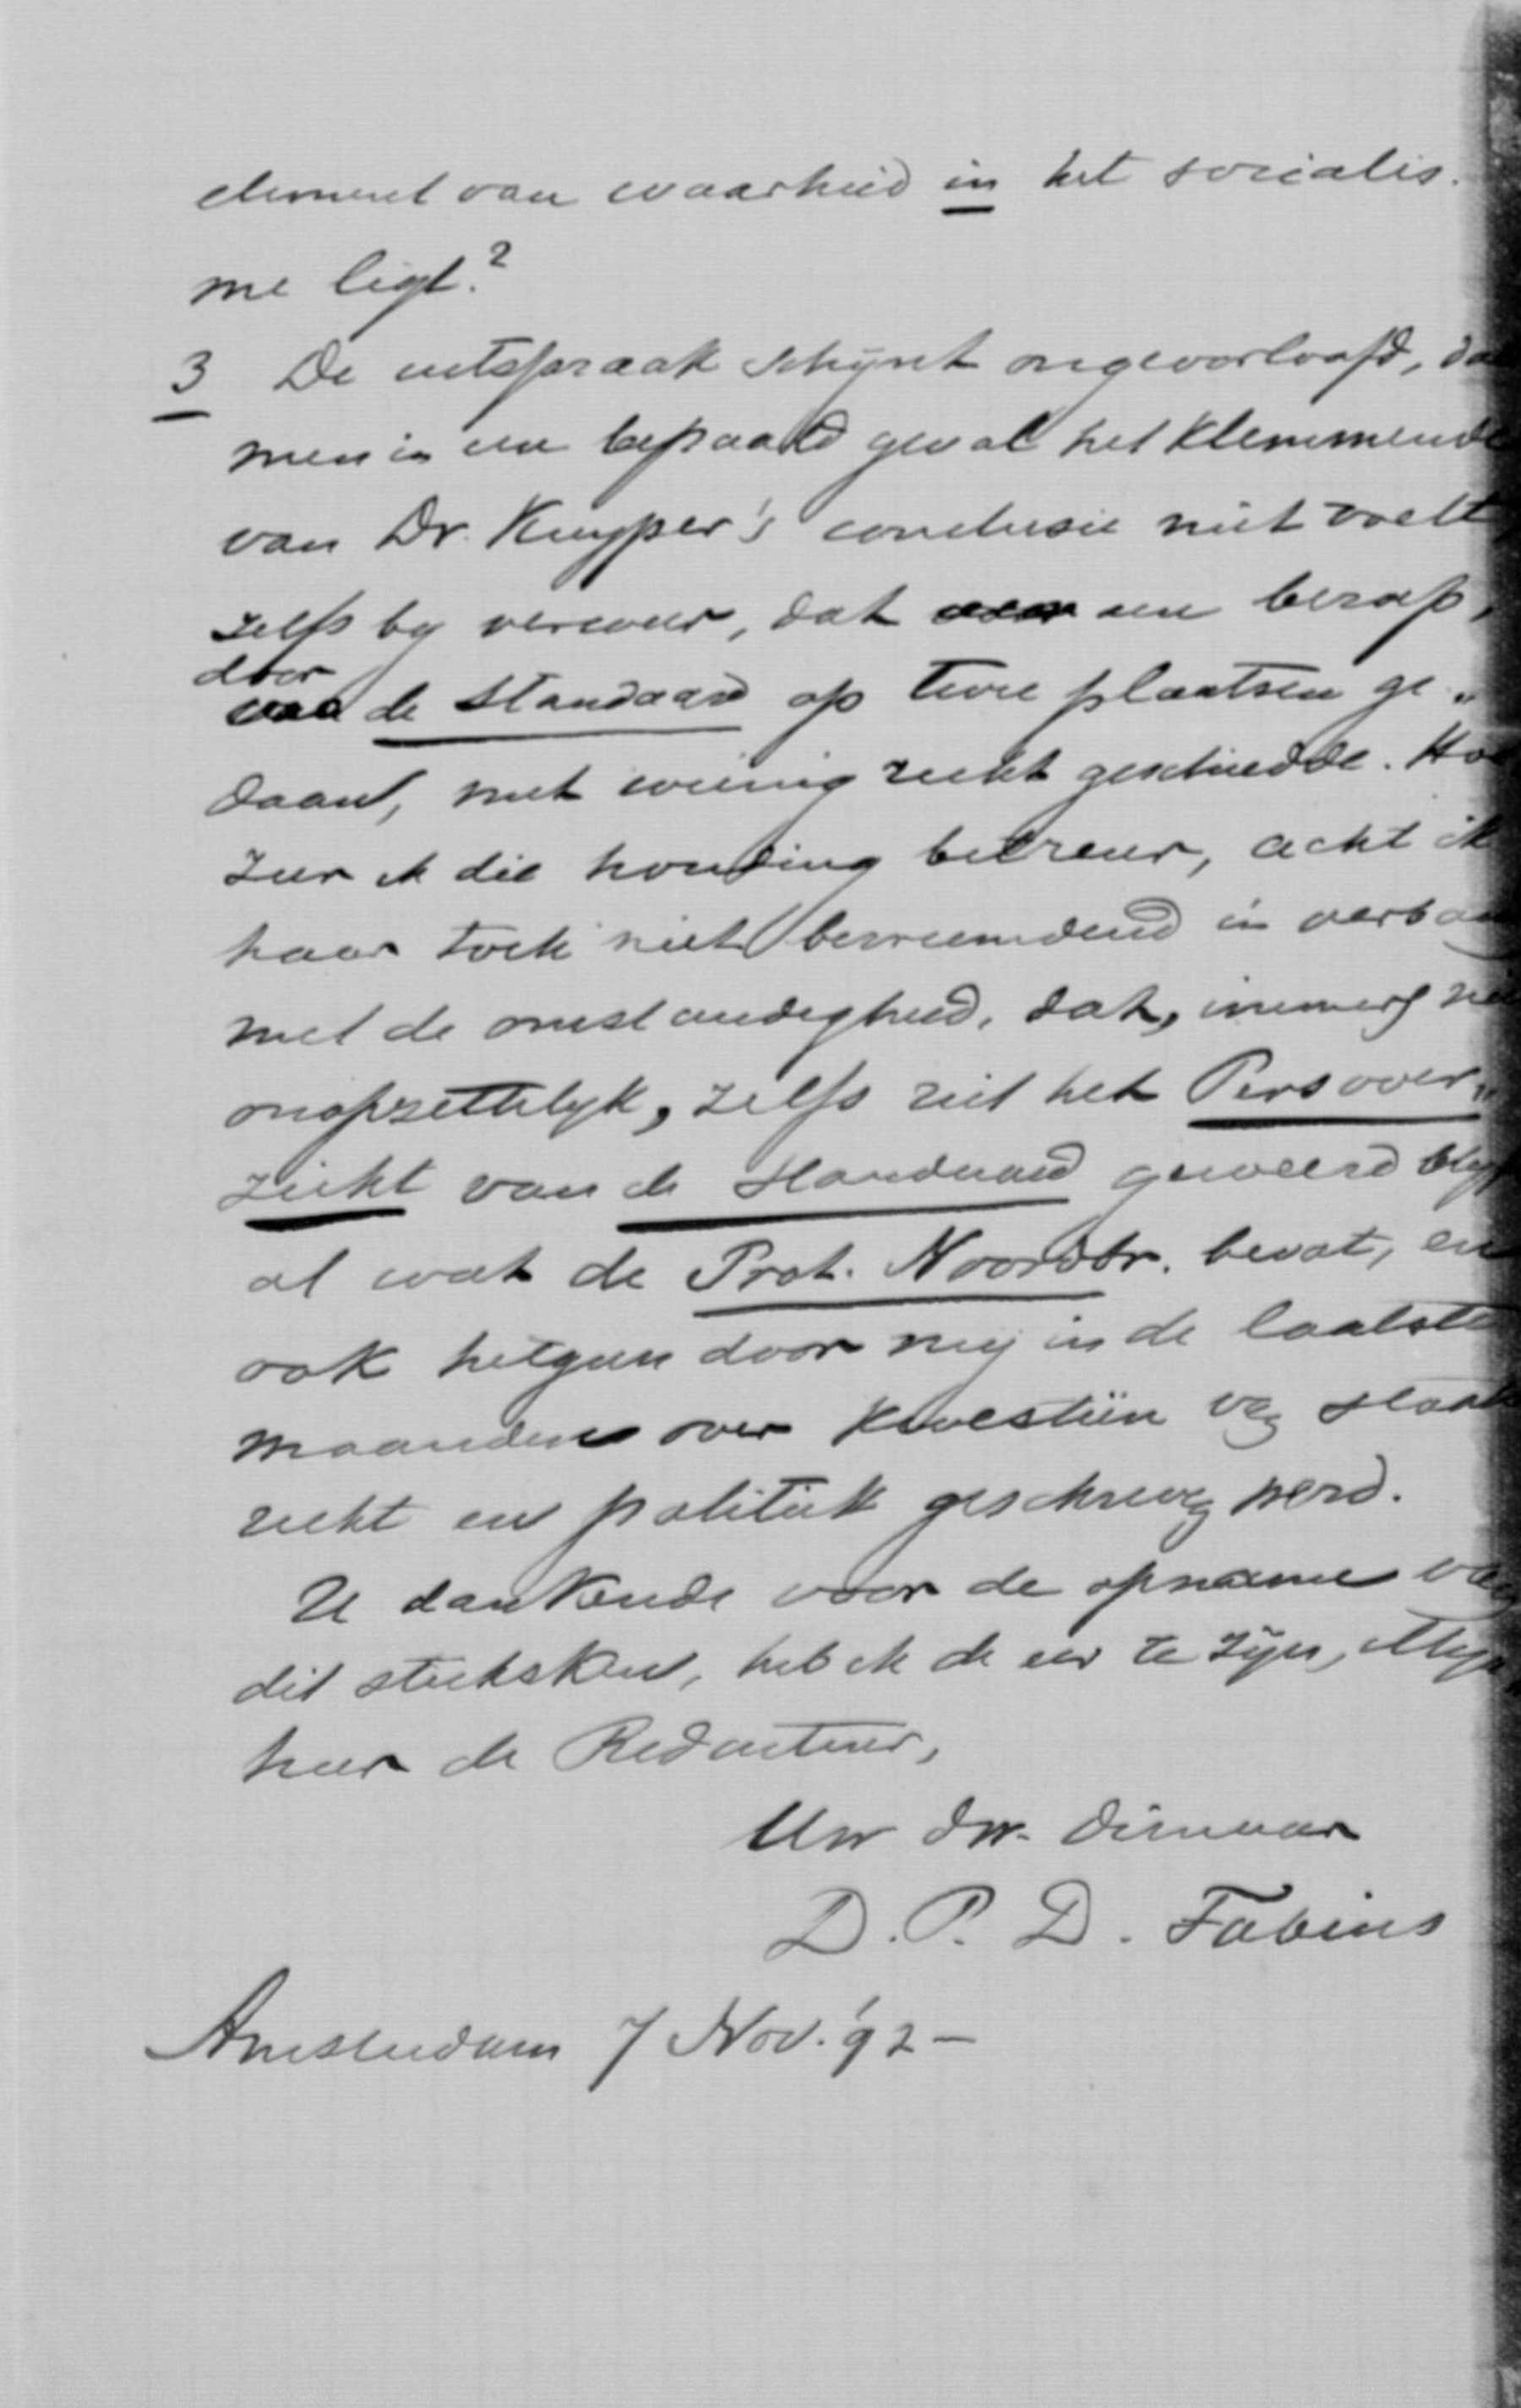 element van waarheid in het socialis-
me ligt?
3 De uitspraak schijnt ongeoorloofd, dat
men in een bepaald geval het klemmende
van Dr. Kuyper's conclusie niet voelt,
zelfs by verweer, dat een beroep,
door de Standaard op twee plaatsen ge„
daan, met weinig recht geschiedde. Hoe
zeer ik die houding betreur, acht ik
haar toch niet bevreemdend in verband
met de omstandigheid, dat, immers niet
onopzettelyk, zelfs uit het Persover„
zicht van de Standaard geweerd blyft
al wat de Prot. Noordbr. bevat, en
ook hetgeen door my in de laatste
maanden over kwestiën van staats
recht en politiek geschreven werd.
U dankende voor de opname van
dit stukske, heb ik de eer te zijn, Myn
heer de Redacteur,
Uw dw. dienaar
D. P. D. Fabius
Amsterdam 7 Nov. '92 –